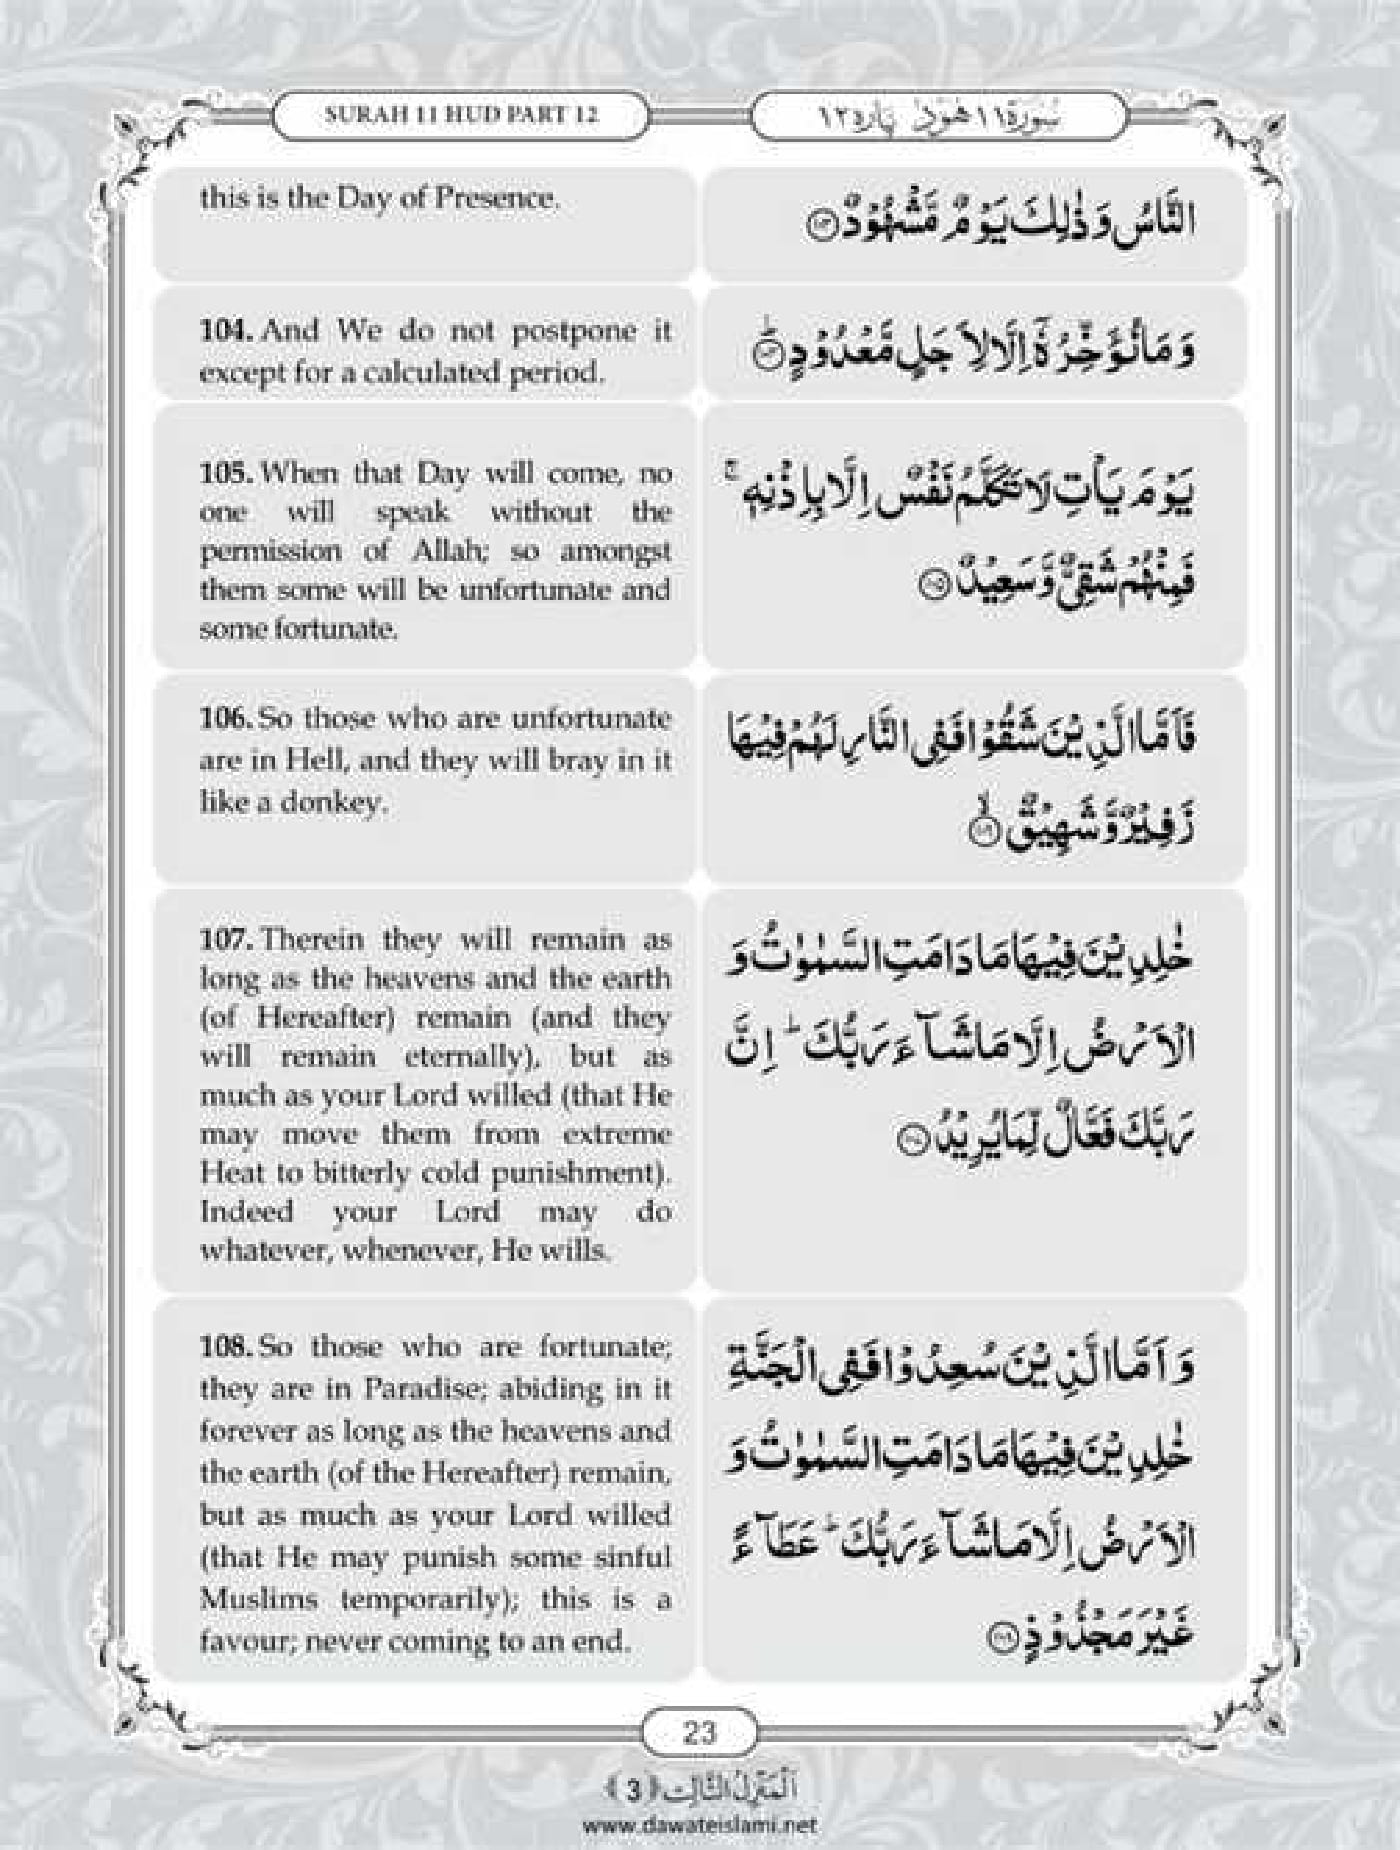 SURAH 11 HUD PART 12
سُوْرَة ١١ هُوْد پارہ ١٢
this is the Day of Presence.
النَّاسُ وَ ذٰلِكَ يَوْمٌ مَّشْهُوْدٌ ﴿١٠٣﴾
104. And We do not postpone it
except for a calculated period.
وَ مَا نُؤَخِّرُهٗۤ اِلَّا لِاَجَلٍ مَّعْدُوْدٍ ﴿١٠٤﴾ؕ
105. When that Day will come, no
one will speak without the
permission of Allah; so amongst
them some will be unfortunate and
some fortunate.
يَوْمَ يَاْتِ لَا تَكَلَّمُ نَفْسٌ اِلَّا بِاِذْنِهٖ ۚ
فَمِنْهُمْ شَقِيٌّ وَّ سَعِيْدٌ ﴿١٠٥﴾
106. So those who are unfortunate
are in Hell, and they will bray in it
like a donkey.
فَاَمَّا الَّذِيْنَ شَقُوْا فَفِى النَّارِ لَهُمْ فِيْهَا
زَفِيْرٌ وَّ شَهِيْقٌ ﴿١٠٦﴾ۙ
107. Therein they will remain as
long as the heavens and the earth
(of Hereafter) remain (and they
will remain eternally), but as
much as your Lord willed (that He
may move them from extreme
Heat to bitterly cold punishment).
Indeed your Lord may do
whatever, whenever, He wills.
خٰلِدِيْنَ فِيْهَا مَا دَامَتِ السَّمٰوٰتُ وَ
الْاَرْضُ اِلَّا مَا شَآءَ رَبُّكَ ؕ اِنَّ
رَبَّكَ فَعَّالٌ لِّمَا يُرِيْدُ ﴿١٠٧﴾
108. So those who are fortunate;
they are in Paradise; abiding in it
forever as long as the heavens and
the earth (of the Hereafter) remain,
but as much as your Lord willed
(that He may punish some sinful
Muslims temporarily); this is a
favour; never coming to an end.
وَ اَمَّا الَّذِيْنَ سُعِدُوْا فَفِى الْجَنَّةِ
خٰلِدِيْنَ فِيْهَا مَا دَامَتِ السَّمٰوٰتُ وَ
الْاَرْضُ اِلَّا مَا شَآءَ رَبُّكَ ؕ عَطَآءً
غَيْرَ مَجْذُوْذٍ ﴿١٠٨﴾
23
اَلْمَنْزِلُ الثَّالِث ﴿3﴾
www.dawateislami.net